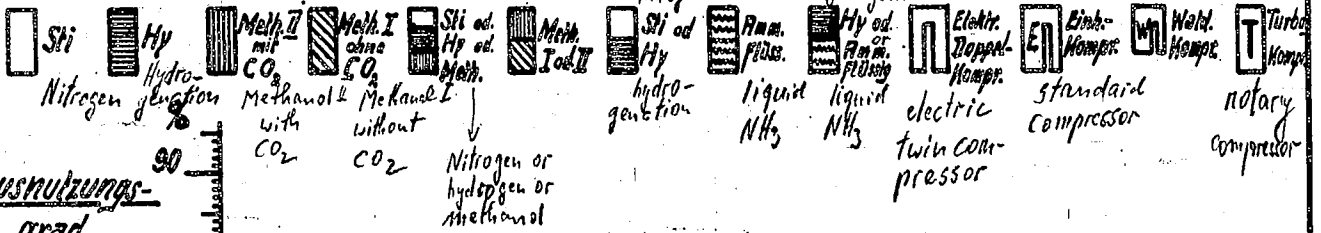 Sti
Nitrogen
Hy
Hydro-
genction
Meth. II
mit
CO2
Methanol II
with
CO2
Meth. I
ohne
CO2
Methanol I
without
CO2
Sti od.
Hy od.
Meth.
Nitrogen or
hydrogen or
methanol
Meth.
I od. II
Sti od
Hy
hydro-
genction
Amm.
flüss.
liquid
NH3
Hy od.
Amm.
flüssig
liquid
NH3
Elektr.
Doppel-
Kompr.
electric
twin com-
pressor
E
Einh.-
Kompr.
standard
compressor
W
Wald.
Kompr.
T
Turbo-
Kompr
notary
compressor
%
90
usnutzungs-
grad